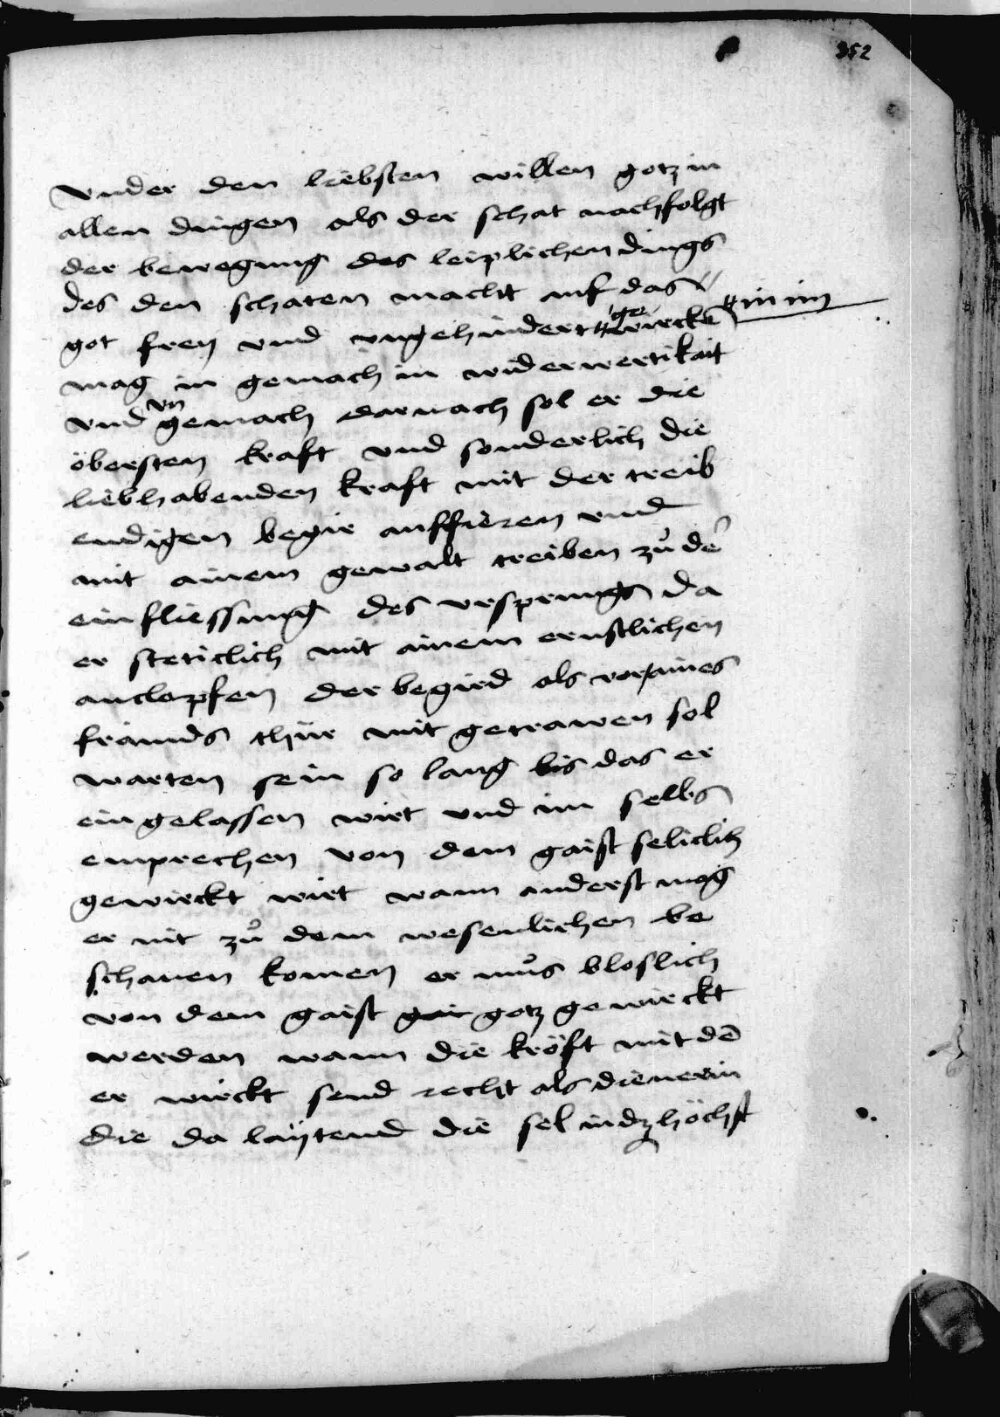 352
vnder den liebsten willen gotz in
allen dingen als der schat nachfolgt
der bewegung des leiplichen dings
des den schaten macht auf das
got frey vnd vngehindert ge wircken in im
mag in gemach in widerwertikait
vnd vn gemach darnach sol er die
öbersten kraft vnd sonderlich die
liebhabenden kraft mit der treib
endigen begir auffieren vnd
mit ainem gewalt treiben zů dē
einfliessung des vrsprungs da
er steticlich mit ainem ernstlichen
anclopfen der begird als vor aines
frainds thür mit getrawen sol
warten sein so lang bis das er
ein gelassen wirt vnd im selbs
emprechen von dem gaist seliclich
gewirckt wirt wann anderst mag
er nit zů dem wesenlichen be
schauen komen er můs bloslich
von dem gaist gotz gewirckt
werden wann die kröft mit dē
er wirckt send recht als dienerin
die da laÿtend die sel in dz höchst